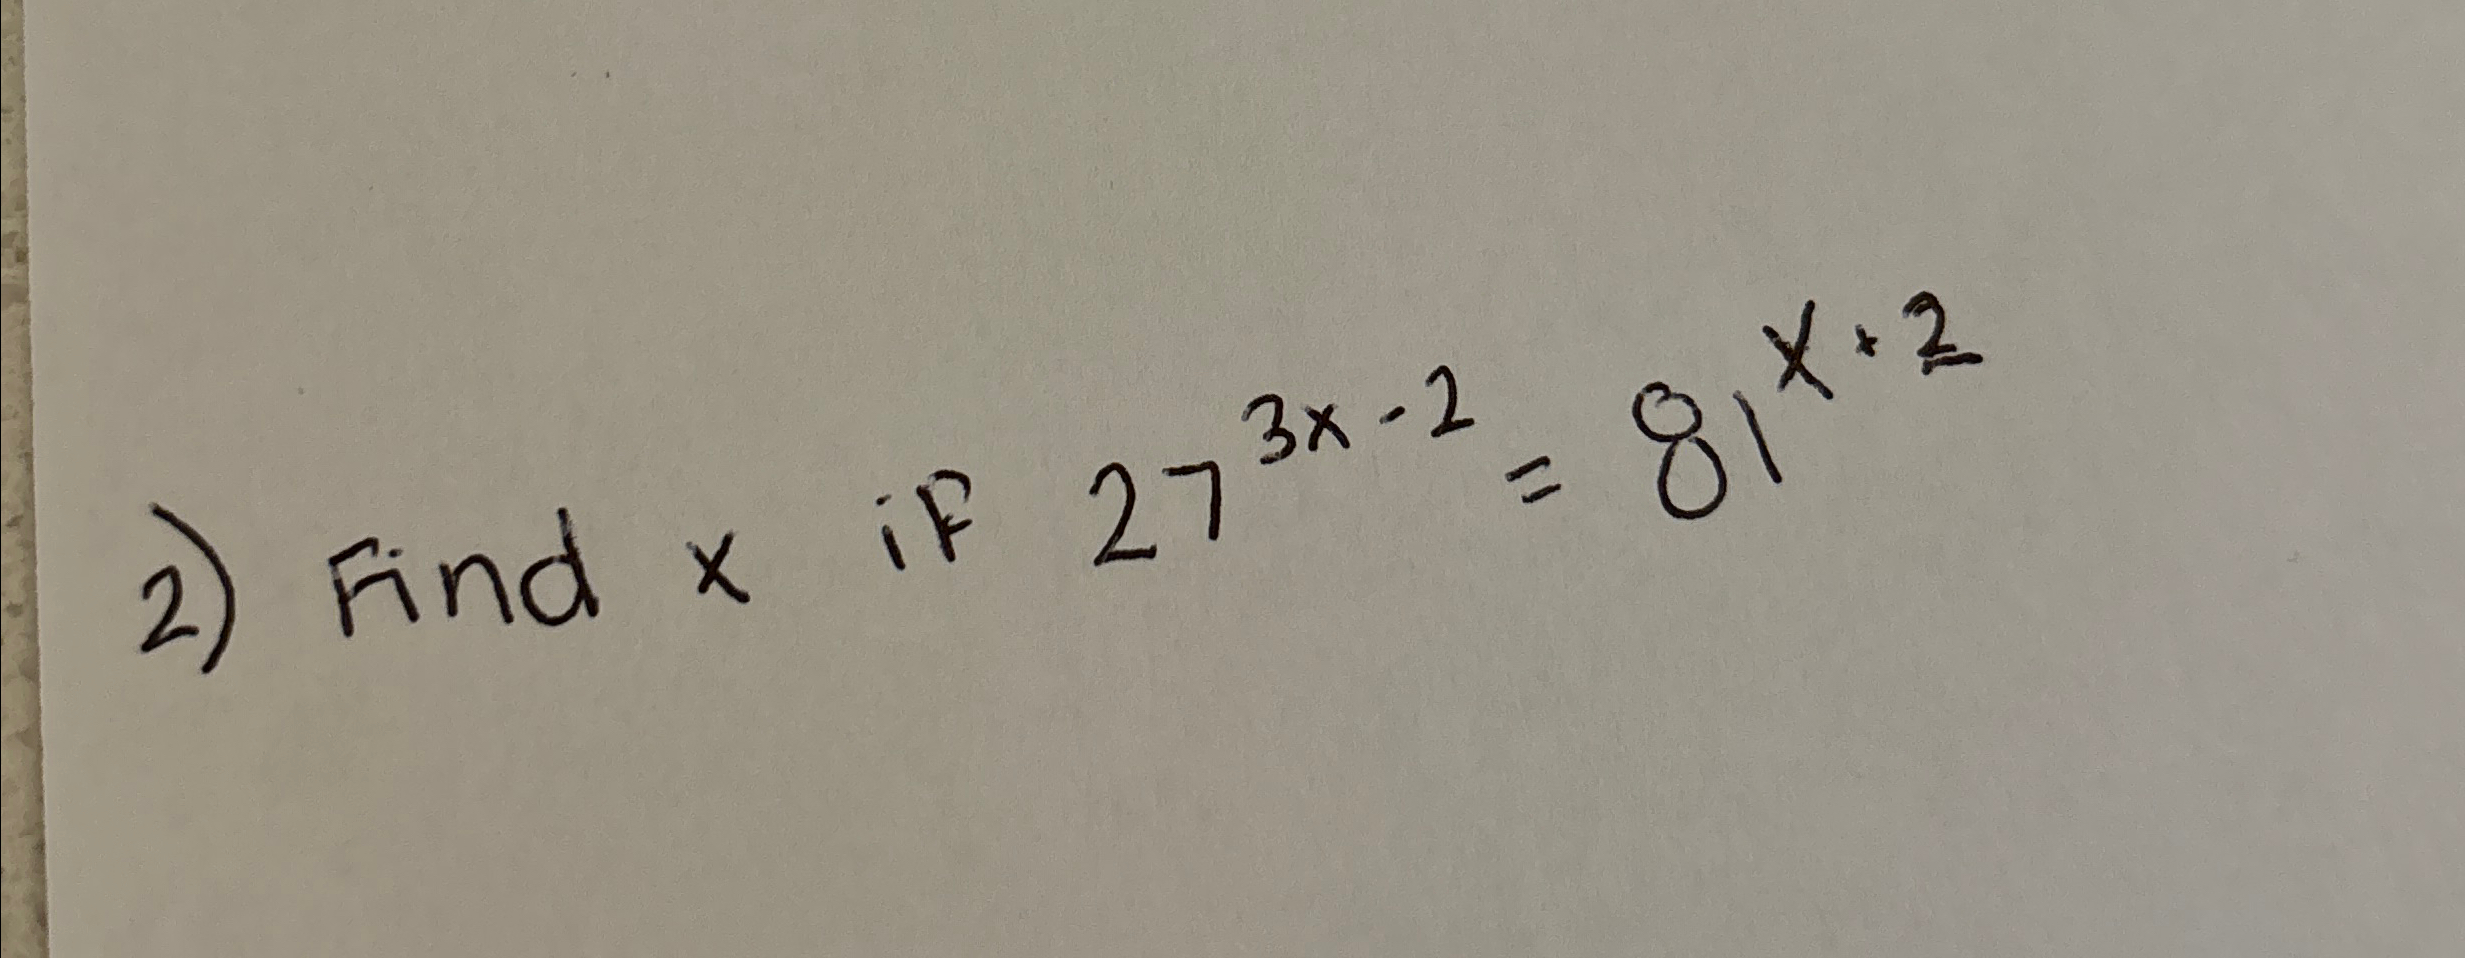 2) Find x if 27^{3x-2} = 81^{x+2}